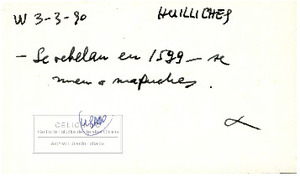 W 3-3-90 HUILLICHES
- Se rebelan en 1599 - se
unen a mapuches.
USADO
CELICH